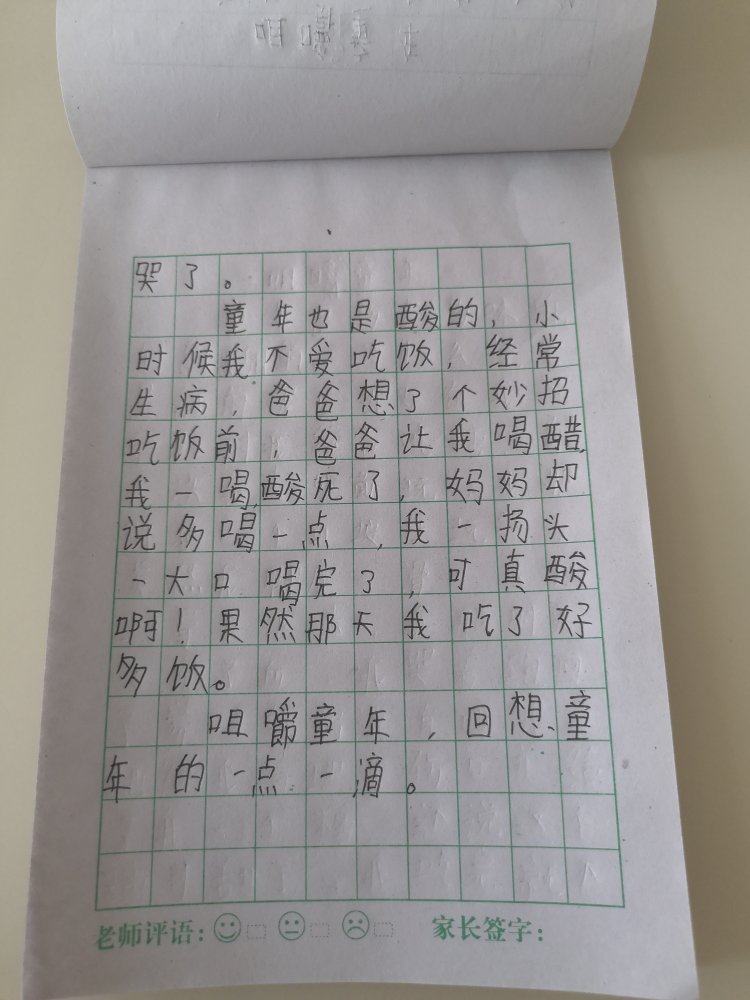 哭了。
童年也是酸的，小
时候我不爱吃饭，经常
生病，爸爸想了个妙招
吃饭前，爸爸让我喝醋，
我一喝，酸死了，妈妈却
说多喝一点，我一扬头
一大口喝完了，可真酸
啊！果然那天我吃了好
多饭。
咀嚼童年，回想童
年的一点一滴。
老师评语： 家长签字：